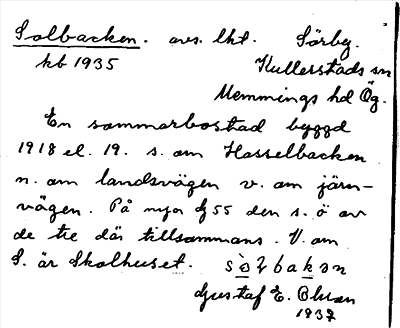 Solbacken. avs. lht. Sörby.
kb 1935 Kullerstads sn
Memmings hd Ög.
En sommarbostad byggd
1918 el. 19. s. om Hasselbacken
n. om landsvägen v. om järn-
vägen. På nya dj 55 den s. ö av
de tre där tillsammans. V. om
S. är Skolhuset.
Gustaf E. Olsson
1937